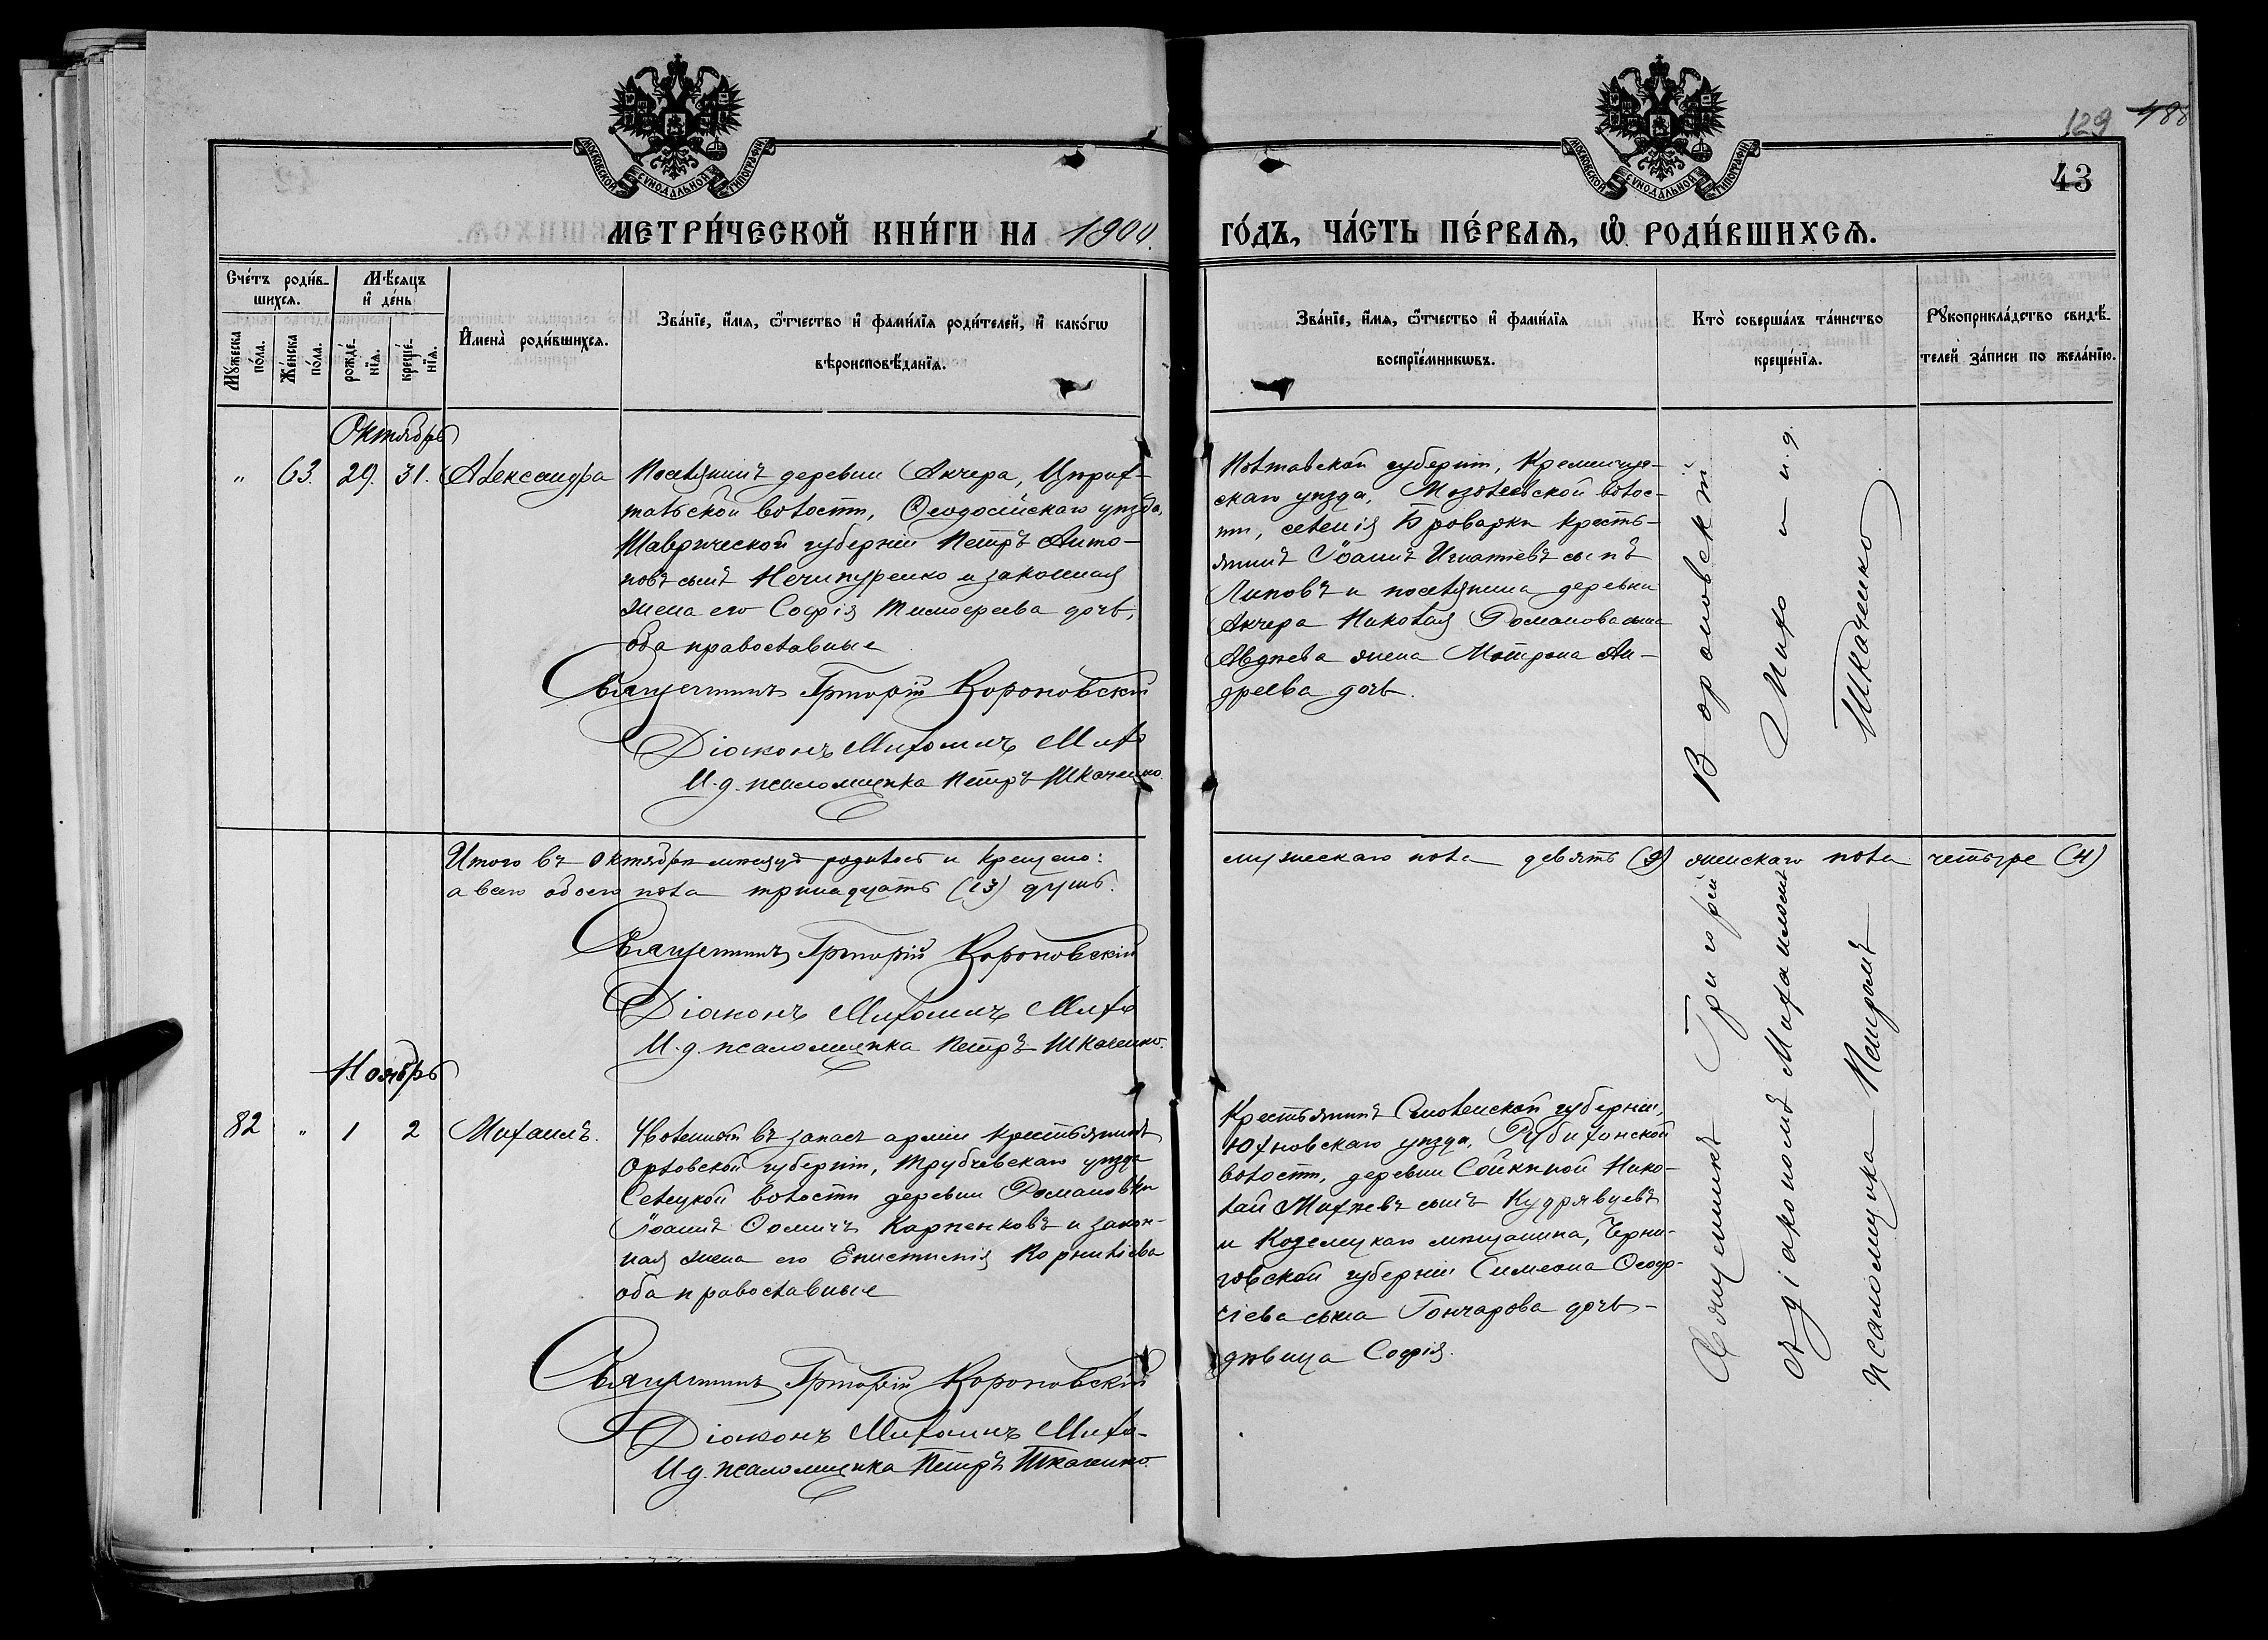 129 188
43
МОСКОВСКОЙ СУНОДАЛЬНОЙ ТИПОГРАФІИ
МОСКОВСКОЙ СУНОДАЛЬНОЙ ТИПОГРАФІИ
МЕТРИ́ЧЕСКОЙ КНИ́ГИ НА 1900.
ГО́ДЪ, ЧА́СТЬ ПЕ́РВАѦ, Ѡ҆ РОДИ́ВШИХСѦ.
Сче́тъ роди́в-
шихсѧ.
Мꙋ́жеска
по́ла.
Же́нска
по́ла.
Мѣ́сѧцъ
и҆ де́нь
рожде́-
нїѧ.
креще́-
нїѧ.
И҆мена̀ роди́вшихсѧ.
Зва́нїе, и҆́мѧ, ѻ҆́тчество и҆ фами́лїѧ роди́телей, и҆ како́гѡ
вѣроисповѣ́данїѧ.
Зва́нїе, и҆́мѧ, ѻ҆́тчество и҆ фами́лїѧ
воспрїе́мникѡвъ.
Кто̀ соверша́лъ та́инство
креще́нїѧ.
Рꙋкоприкла́дство свидѣ́-
телей за́писи по жела́нїю.
Октябрь
" 63. 29. 31. Александра
Поселянинъ деревни Акчера, Цюрих-
тальской волости, Ѳеодосійскаго уѣзда,
Таврической губерніи Петръ Анто-
новъ сынъ Нечипуренко и законная
жена его Софія Тимоѳеева дочь,
оба православные
Священникъ Григорій Вороновскій
Діаконъ Михаилъ Михо
И. д. псаломщика Петръ Ткаченко.
Полтавской губерніи, Кременчуг-
скаго уѣзда, Мозолеевской волос-
ти, селенія Броварки кресть-
янинъ Іоаннъ Игнатіевъ сынъ
Липовъ и поселянина деревни
Акчера Николая Романова сына
Авдѣева жена Матрона Ан-
дреева дочь.
Итого въ октябрѣ мѣсяцѣ родилось и крещено:
мужескаго пола девять (9) женскаго пола четыре (4)
а всего обоего пола тринадцать (13) душъ.
Священникъ Григорій Вороновскій
Діаконъ Михаилъ Михо
И. д. псаломщика Петръ Ткаченко.
Ноябрь
82 " 1 2 Михаилъ.
Уволенный въ запасъ арміи крестьянинъ
Орловской губерніи, Трубчевскаго уѣзда
Селецкой волости деревни Романовки
Іоаннъ Ѳомичъ Карпенковъ и закон-
ная жена его Епистимія Корниліева
оба православные
Священникъ Григорій Вороновскій
Діаконъ Михаилъ Михо
И. д. псаломщика Петръ Ткаченко
Крестьянинъ Смоленской губерніи,
Юхновскаго уѣзда, Рубихонской
волости, деревни Сойкиной Нико-
лай Михѣевъ сынъ Кудрявцевъ
и Козелецкаго мѣщанина, Черни-
говской губерніи Симеона Ѳеодо-
сіева сына Гончарова дочь -
дѣвица Софія.
Священникъ Григорій Вороновскій
съ діакономъ Михаиломъ Михо и и. д.
псаломщика Петромъ Ткаченко